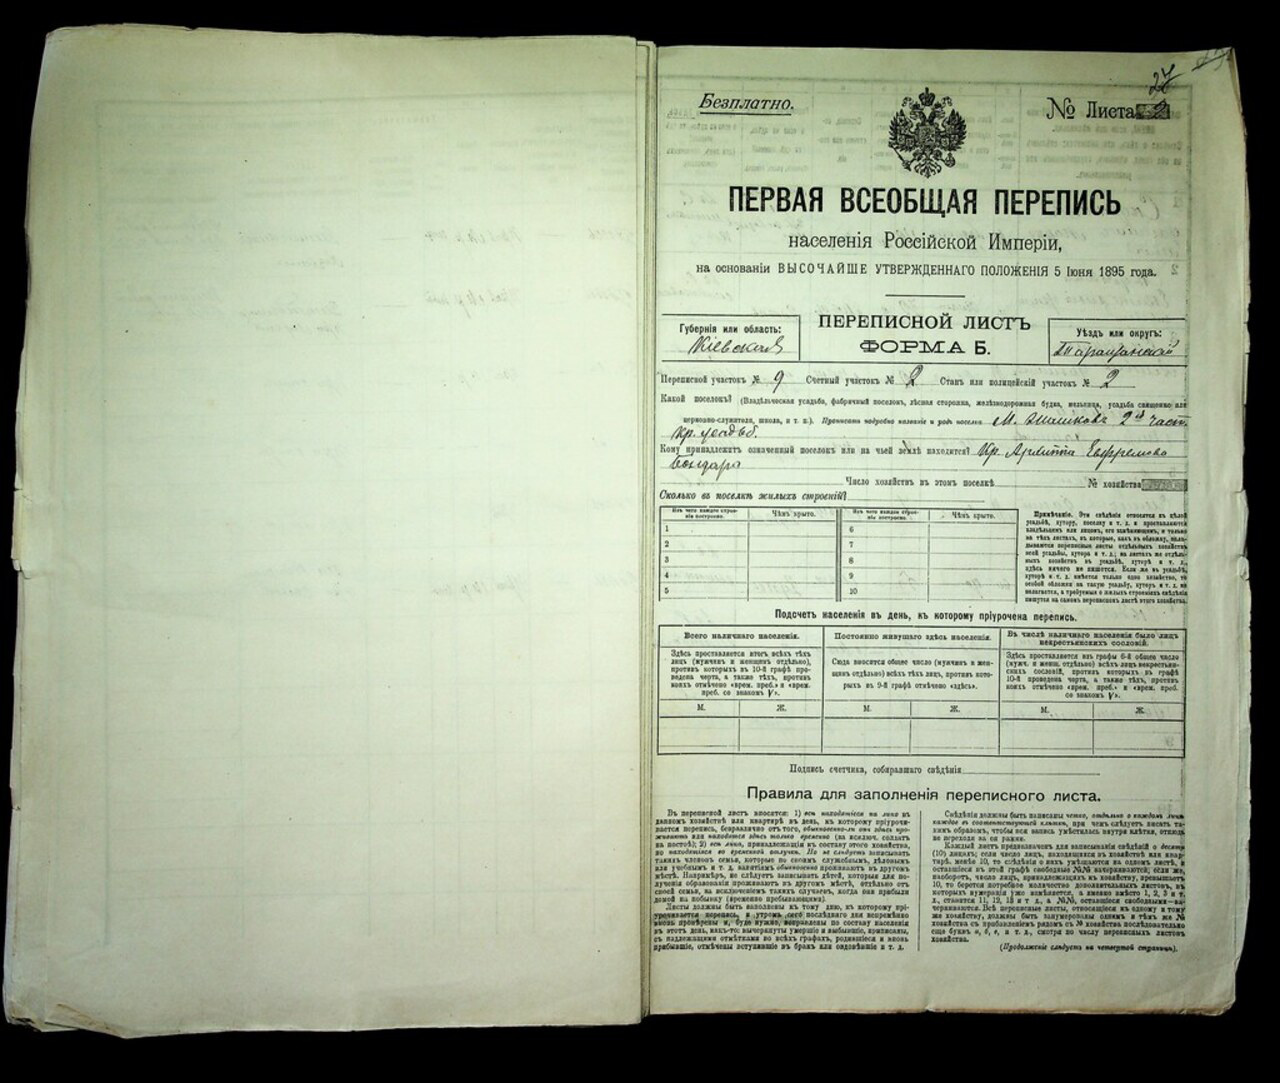 27
Безплатно.
№ Листа
ПЕРВАЯ ВСЕОБЩАЯ ПЕРЕПИСЬ
населенія Россійской Имперіи,
на основаніи ВЫСОЧАЙШЕ УТВЕРЖДЕННАГО ПОЛОЖЕНІЯ 5 Іюня 1895 года.
Губернія или область:
Кіевская
ПЕРЕПИСНОЙ ЛИСТЪ
ФОРМА Б.
Уѣздъ или округъ:
Таращанскій
Переписной участокъ № 9 Счетный участокъ № 2 Станъ или полицейскій участокъ № 2
Какой поселокъ? (Владѣльческая усадьба, фабричный поселокъ, лѣсная сторожка, желѣзнодорожная будка, мельница, усадьба священно или
церковно-служителя, школа, и т. п.). Прописать подробно названіе и родъ поселка М. 2й част.
кр. усадьб.
Кому принадлежитъ означенный поселокъ или на чьей землѣ находится? Кр. Архиппа Евфремова
Бондаря
Число хозяйствъ въ этомъ поселкѣ № хозяйства
Сколько въ поселкѣ жилыхъ строеній?
Изъ чего каждое строеніе построено. Чѣмъ крыто. Изъ чего каждое строеніе построено. Чѣмъ крыто.
1 6
2 7
3 8
4 9
5 10
Примѣчаніе. Эти свѣдѣнія относятся къ цѣлой
усадьбѣ, хутору, поселку и т. д. и проставляются
владѣльцемъ или лицомъ, его замѣняющимъ, и только
на тѣхъ листахъ, въ которые, какъ въ обложку, вкла-
дываются переписные листы отдѣльныхъ хозяйствъ
всей усадьбы, хутора и т. д.; на листахъ же отдѣль-
ныхъ хозяйствъ въ усадьбѣ, хуторѣ и т. д.,
здѣсь ничего не пишется. Если же въ усадьбѣ,
хуторѣ и т. д. имѣется только одно хозяйство, то
особой обложки на такую усадьбу, хуторъ и т. д. не
полагается, а требуемыя о жилыхъ строеніяхъ свѣдѣнія
пишутся на самомъ переписномъ листѣ этого хозяйства.
Подсчетъ населенія въ день, къ которому пріурочена перепись.
Всего наличнаго населенія.
Здѣсь проставляется итогъ всѣхъ тѣхъ
лицъ (мужчинъ и женщинъ отдѣльно),
противъ которыхъ въ 10-й графѣ про-
ведена черта, а также тѣхъ, противъ
коихъ отмѣчено «врем. преб.» и «врем.
преб. со знакомъ V».
Постоянно живущаго здѣсь населенія.
Сюда вносится общее число (мужчинъ и жен-
щинъ отдѣльно) всѣхъ тѣхъ лицъ, противъ кото-
рыхъ въ 9-й графѣ отмѣчено «здѣсь».
Въ числѣ наличнаго населенія было лицъ
некрестьянскихъ сословій.
Здѣсь проставляется изъ графы 6-й общее число
(мужч. и женщ. отдѣльно) всѣхъ лицъ некрестьян-
скихъ сословій, противъ которыхъ въ графѣ
10-й проведена черта, а также тѣхъ, противъ
коихъ отмѣчено «врем. преб.» и «врем. преб.
со знакомъ V».
М. Ж. М. Ж. М. Ж.
Подпись счетчика, собиравшаго свѣдѣнія
Правила для заполненія переписного листа.
Въ переписной листъ вносятся: 1) всѣ находящіеся на лицо въ
данномъ хозяйствѣ или квартирѣ въ день, къ которому пріурочи-
вается перепись, безразлично отъ того, обыкновенно-ли они здѣсь про-
живаютъ или находятся здѣсь только временно (за исключ. солдатъ
на постоѣ); 2) всѣ лица, принадлежащія къ составу этого хозяйства,
но находящіеся во временной отлучкѣ. Но не слѣдуетъ записывать
такихъ членовъ семьи, которые по своимъ служебнымъ, дѣловымъ
или учебнымъ и т. д. занятіямъ обыкновенно проживаютъ въ другомъ
мѣстѣ. Напримѣръ, не слѣдуетъ записывать дѣтей, которыя для по-
лученія образованія проживаютъ въ другомъ мѣстѣ, отдѣльно отъ
своей семьи, за исключеніемъ такихъ случаевъ, когда они прибыли
домой на побывку (временно пребывающими).
Листы должны быть заполнены къ тому дню, къ которому прі-
урочивается перепись, и утромъ сего послѣдняго дня непремѣнно
вновь провѣрены и, буде нужно, исправлены по составу населенія
въ этотъ день, какъ-то: вычеркнуты умершіе и выбывшіе, приписаны,
съ надлежащими отмѣтками во всѣхъ графахъ, родившіеся и вновь
прибывшіе, отмѣчены вступившіе въ бракъ или овдовѣвшіе и т. д.
Свѣдѣнія должны быть написаны четко, отдѣльно о каждомъ лицѣ
каждое въ соотвѣтствующей клѣткѣ, при чемъ слѣдуетъ писать та-
кимъ образомъ, чтобы вся запись умѣстилась внутри клѣтки, отнюдь
не переходя за ея рамки.
Каждый листъ предназначенъ для записыванія свѣдѣній о десяти
(10) лицахъ; если число лицъ, находящихся въ хозяйствѣ или квар-
тирѣ, менѣе 10, то свѣдѣнія о нихъ умѣщаются на одномъ листѣ, а
оставшіеся въ этой графѣ свободные №№ зачеркиваются; если же,
наоборотъ, число лицъ, принадлежащихъ къ хозяйству, превышаетъ
10, то берется потребное количество дополнительныхъ листовъ, въ
которыхъ нумерація уже измѣняется, а именно вмѣсто 1, 2, 3 и т.
д., ставится 11, 12, 13 и т. д., а №№, оставшіеся свободными—за-
черкиваются. Всѣ переписные листы, относящіеся къ одному и тому
же хозяйству, должны быть занумерованы однимъ и тѣмъ же №
хозяйства съ прибавленіемъ рядомъ съ № хозяйства послѣдовательно
еще буквъ а, б, в, и т. д., смотря по числу переписныхъ листовъ
хозяйства.
(Продолженіе слѣдуетъ на четвертой страницѣ).